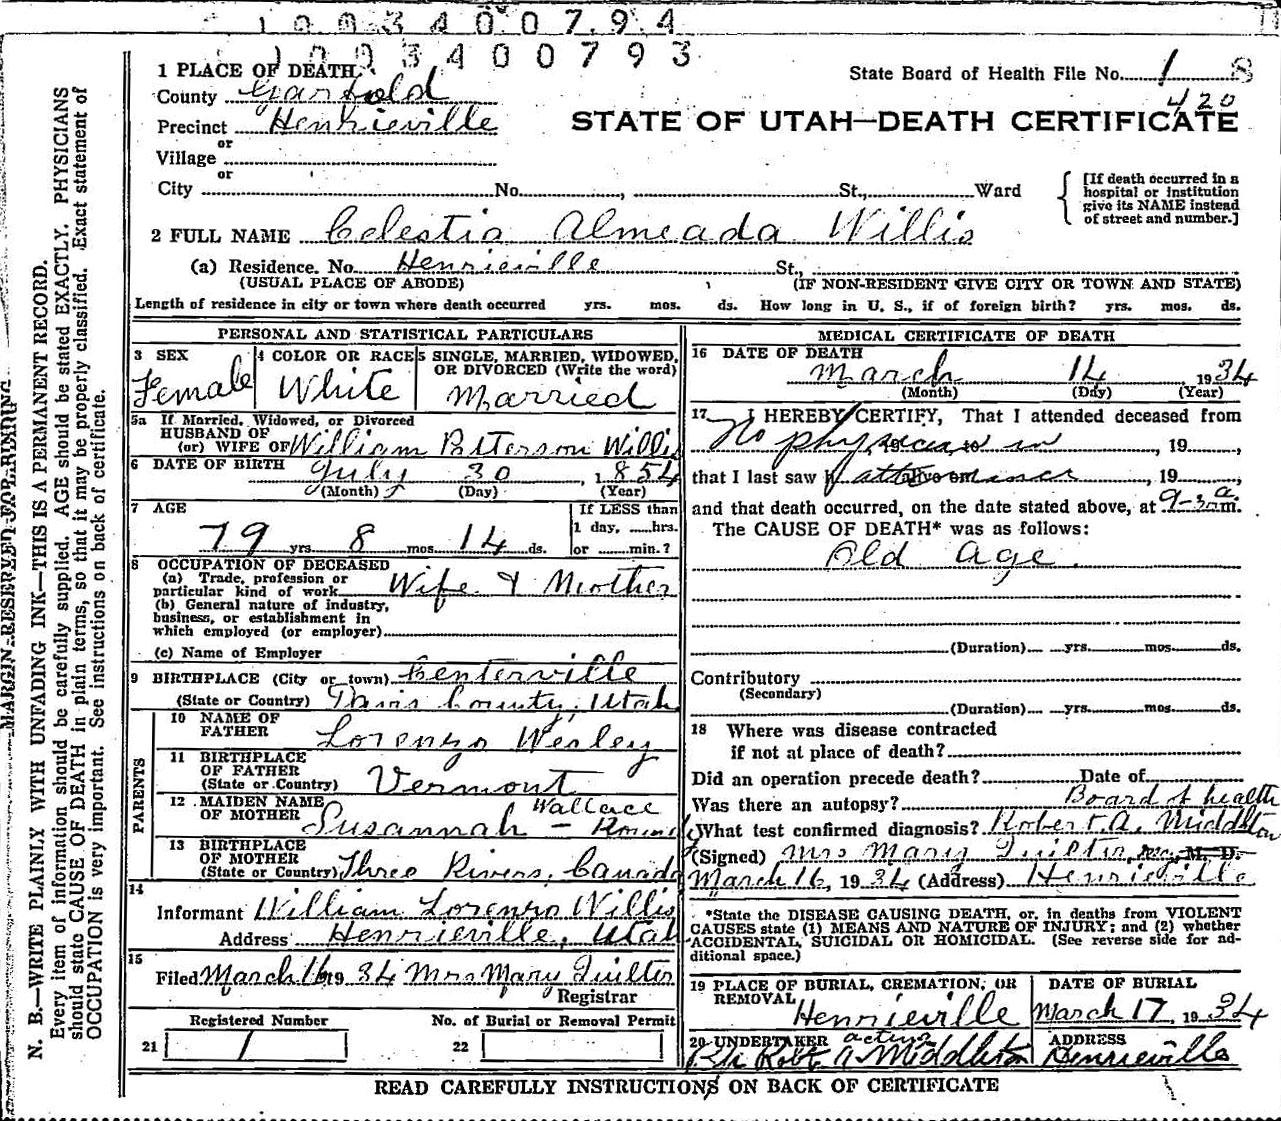 1003400794
1003400793
1 PLACE OF DEATH
County Garfield
Precinct Henrieville
or
Village
or
City No. , St, Ward
State Board of Health File No. 1 8
420
STATE OF UTAH—DEATH CERTIFICATE
[If death occurred in a
hospital or institution
give its NAME instead
of street and number.]
2 FULL NAME Celestia Almeada Willis
(a) Residence. No. Henrieville St.,
(USUAL PLACE OF ABODE) (IF NON-RESIDENT GIVE CITY OR TOWN AND STATE)
Length of residence in city or town where death occurred yrs. mos. ds. How long in U. S., if of foreign birth? yrs. mos. ds.
PERSONAL AND STATISTICAL PARTICULARS
3 SEX
Female
4 COLOR OR RACE
White
5 SINGLE, MARRIED, WIDOWED,
OR DIVORCED (Write the word)
Married
5a If Married, Widowed, or Divorced
HUSBAND OF
(or) WIFE OF William Patterson Willis
6 DATE OF BIRTH July 30, 1854
(Month) (Day) (Year)
7 AGE
79 yrs 8 mos. 14 ds.
If LESS than
1 day, hrs.
or min.?
8 OCCUPATION OF DECEASED
(a) Trade, profession or
particular kind of work Wife & Mother
(b) General nature of industry,
business, or establishment in
which employed (or employer)
(c) Name of Employer
9 BIRTHPLACE (City or town) Centerville
(State or Country) Davis County, Utah
PARENTS
10 NAME OF
FATHER Lorenzo Wesley
11 BIRTHPLACE
OF FATHER
(State or Country) Vermont
12 MAIDEN NAME
OF MOTHER Wallace
Susannah –
13 BIRTHPLACE
OF MOTHER
(State or Country) Three Rivers, Canada
14
Informant William Lorenzo Willis
Address Henrieville, Utah
15
Filed March 16 19 34 Mrs Mary Quilter
Registrar
Registered Number No. of Burial or Removal Permit
21 1 22
MEDICAL CERTIFICATE OF DEATH
16 DATE OF DEATH
March 14 1934
(Month) (Day) (Year)
17 I HEREBY CERTIFY, That I attended deceased from
No physician in , 19 ,
that I last saw h attendance , 19 ,
and that death occurred, on the date stated above, at 9-30 a m.
The CAUSE OF DEATH* was as follows:
Old age.
(Duration) yrs. mos. ds.
Contributory
(Secondary)
(Duration) yrs. mos. ds.
18 Where was disease contracted
if not at place of death?
Did an operation precede death? Date of
Was there an autopsy? Board of health
What test confirmed diagnosis? Robert. A. Middleton
(Signed) Mrs Mary Quilter, M. D.
March 16, 1934 (Address) Henrieville
*State the DISEASE CAUSING DEATH, or, in deaths from VIOLENT
CAUSES state (1) MEANS AND NATURE OF INJURY; and (2) whether
ACCIDENTAL, SUICIDAL OR HOMICIDAL. (See reverse side for ad-
ditional space.)
19 PLACE OF BURIAL, CREMATION, OR
REMOVAL Henrieville
DATE OF BURIAL
March 17, 1934
20 UNDERTAKER acting
Robt A Middleton
ADDRESS
Henrieville
READ CAREFULLY INSTRUCTIONS ON BACK OF CERTIFICATE
MARGIN RESERVED FOR BINDING
N. B.—WRITE PLAINLY WITH UNFADING INK—THIS IS A PERMANENT RECORD.
Every item of information should be carefully supplied. AGE should be stated EXACTLY. PHYSICIANS
should state CAUSE OF DEATH in plain terms, so that it may be properly classified. Exact statement of
OCCUPATION is very important. See instructions on back of certificate.